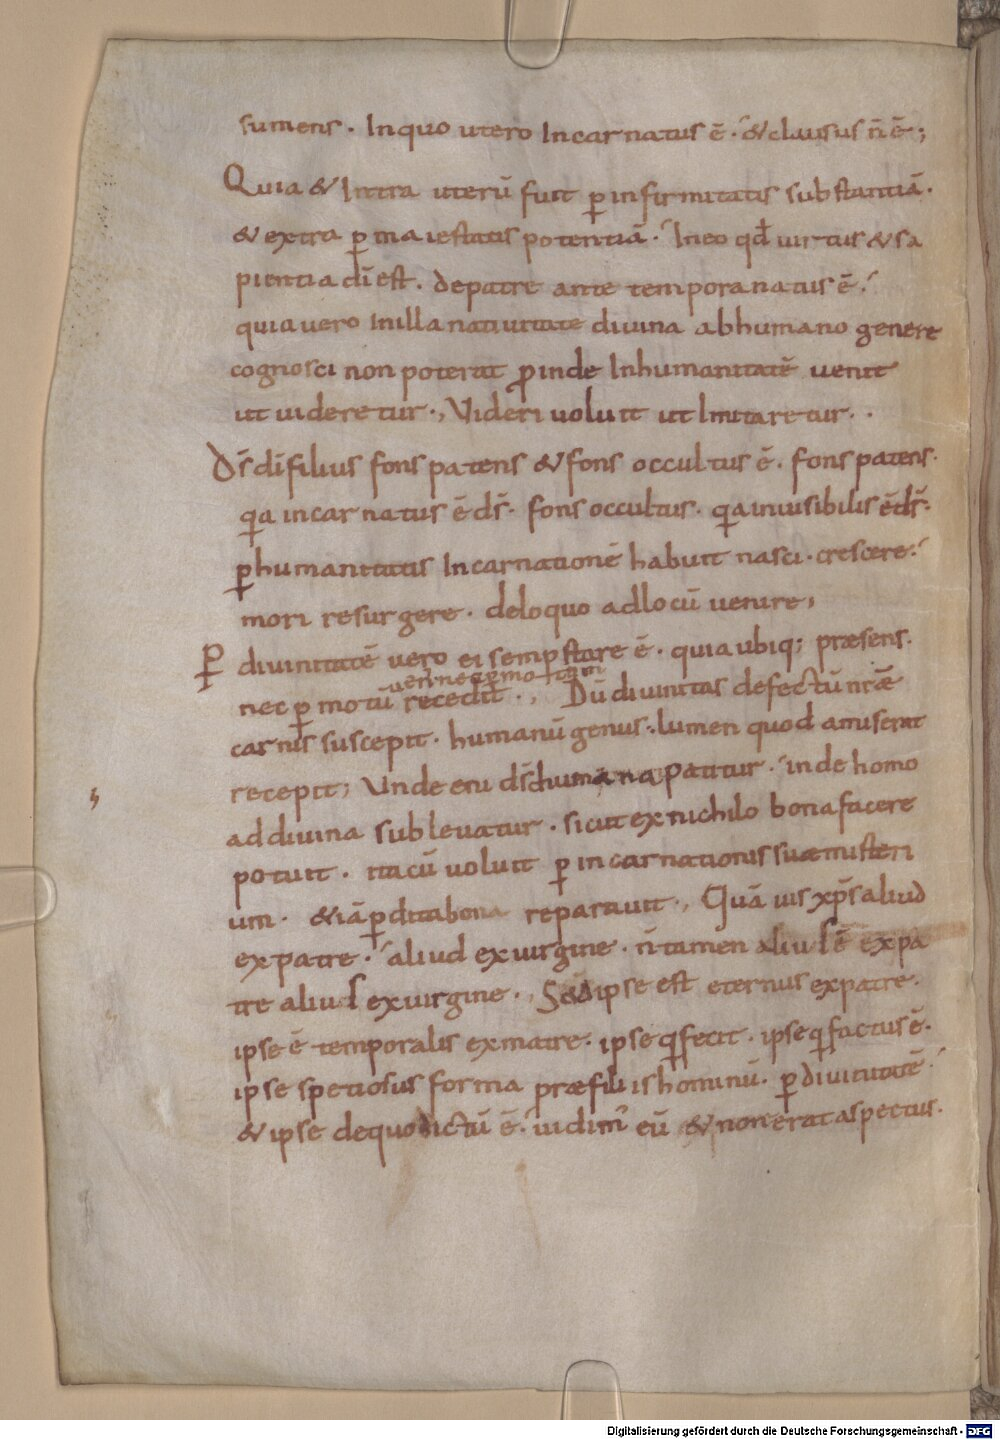 sumens · Inquo utero Incarnatus ē · & clausus n̄ ē ;
Quia & Intra uterū fuit ꝑ infirmitatis substantiā ·
& extra ꝑ maiestatis potentiā · Ineo qđ uirtus & sa
pientia dī est · depatre ante tempora natus ē ·
quia uero Inilla natiuitate diuina abhumano genere
cognosci non poterat ꝓinde Inhumanitatē uenit
ut uideretur · , Uideri uoluit ut Imitaretur · ·
Ds̄ dī filius fons patens & fons occultus ē · fons patens ·
qa incarnatus ē ds̄ · fons occultus · qa inuisibilis ē ds̄ ·
ꝑ humanitatis Incarnationē habuit nasci · crescere ·
mori resurgere · deloquo adlocū uenire ;
ꝑ diuinitatē uero ei semp stare ē · quia ubiq; præsens ·
uenit nec ꝑ motum
nec ꝑ motū recedit · , Dū diuinitas defectū nr̄æ
carnis suscepit · humanū genus · lumen quod amiserat
recepit ; Unde eni ds̄ humana patitur · inde homo
ad diuina subleuatur · sicut ex nichilo bona facere
potuit · ita cū uoluit ꝑ incarnationis suæ misteri
um · & iā ꝑdita bona reparauit · , Quāuis xp̄s aliud
ex patre · aliud ex uirgine · n̄ tamen alius ē ex pa
tre alius ex uirgine · , Sed ipse est eternus ex patre ·
ipse ē temporalis ex matre · ipse qi fecit · ipse qi factus ē ·
ipse spetiosus forma præ filiis hominū · ꝑ diuinitatē ·
& ipse de quo dictū ē · uidim' eū & non erat aspectus ·
Digitalisierung gefördert durch die Deutsche Forschungsgemeinschaft - DFG